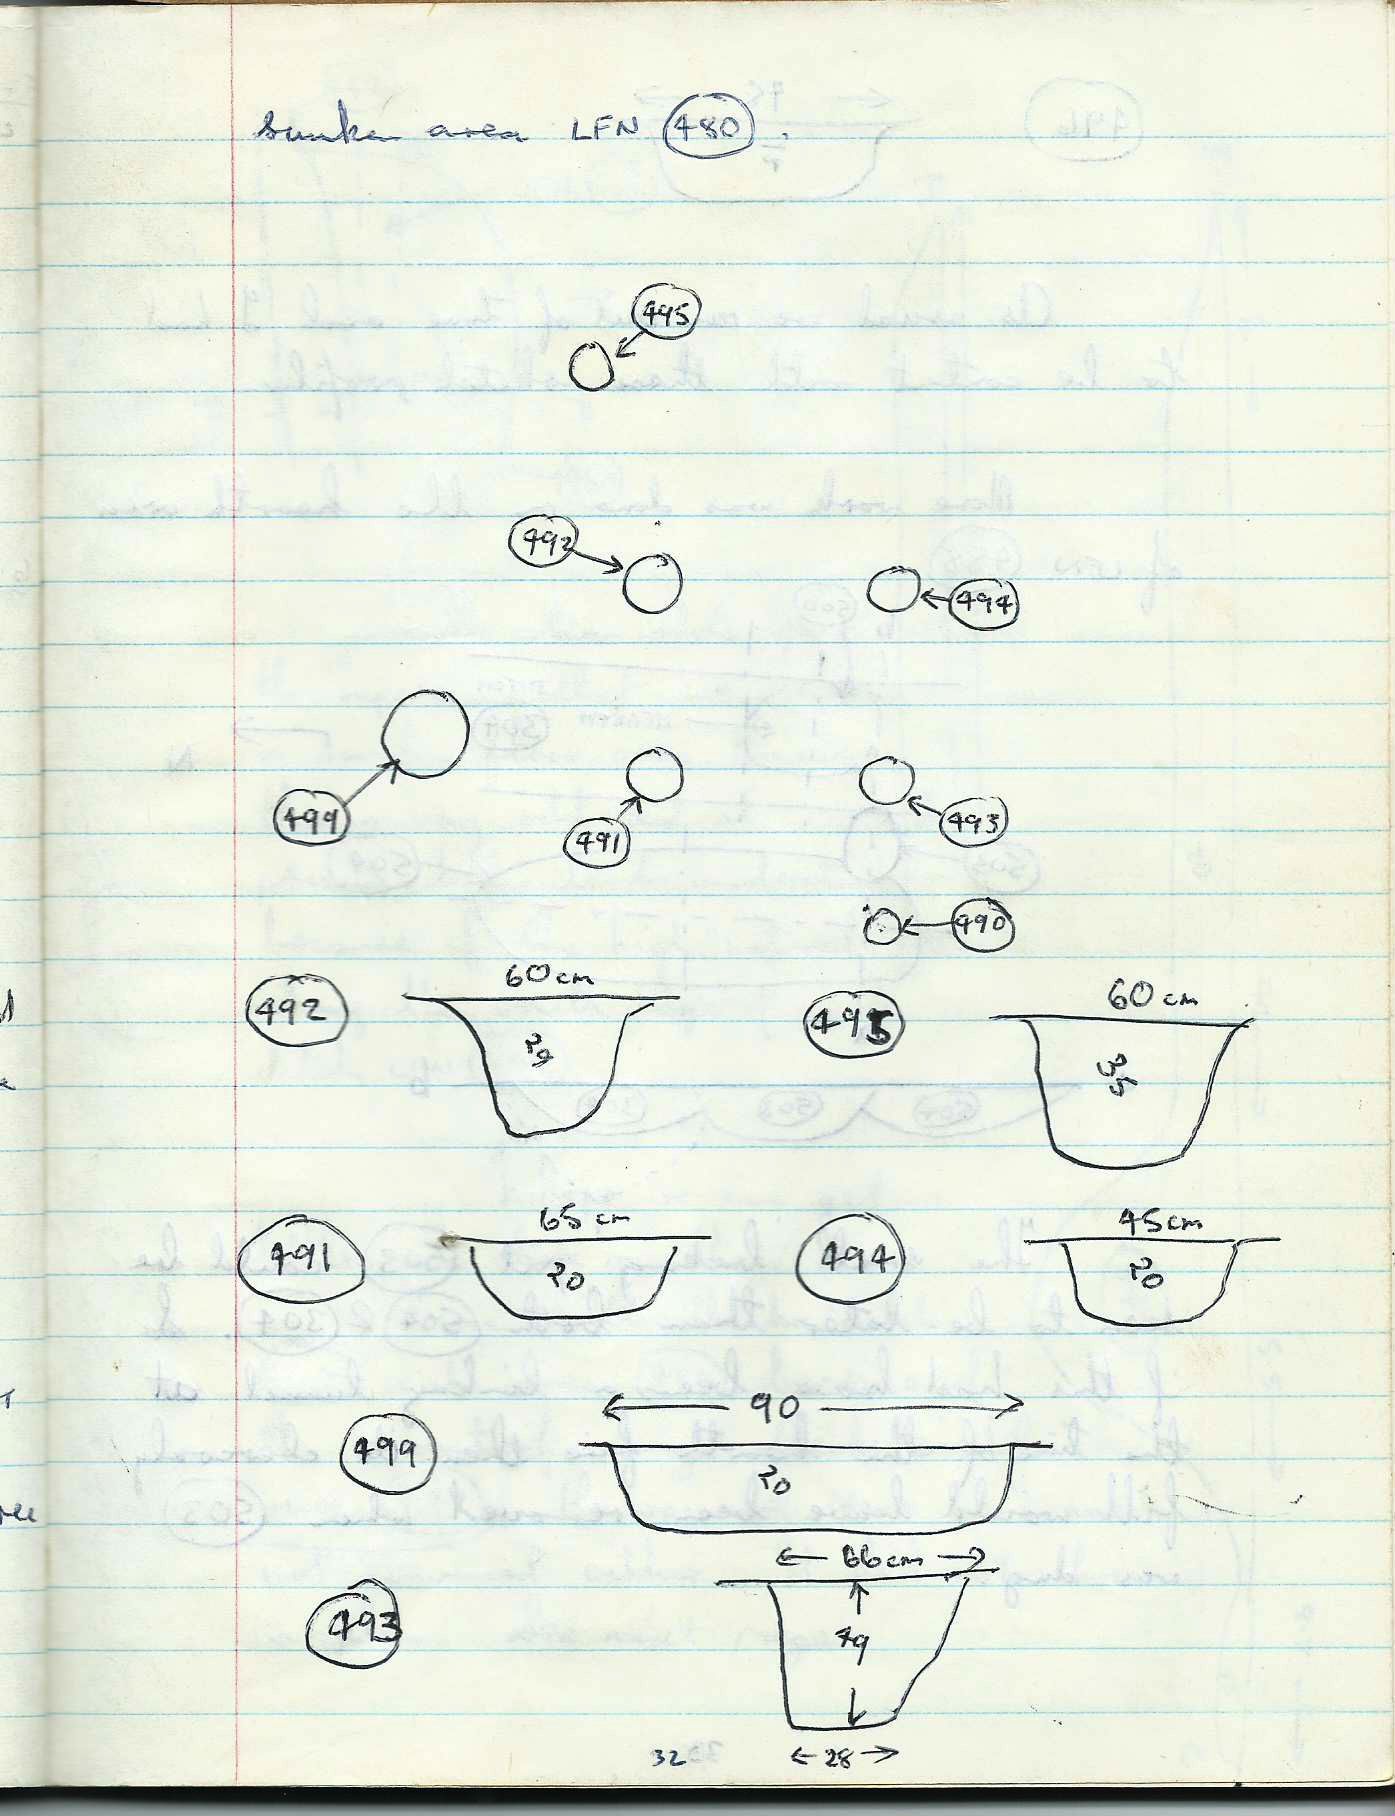 Sunken area LFN 480.
495
492
494
499
491
493
490
492 60 cm
495 60 cm
35
491 65 cm
20
494 45 cm
20
499 90
20
493 66 cm
49
28
32